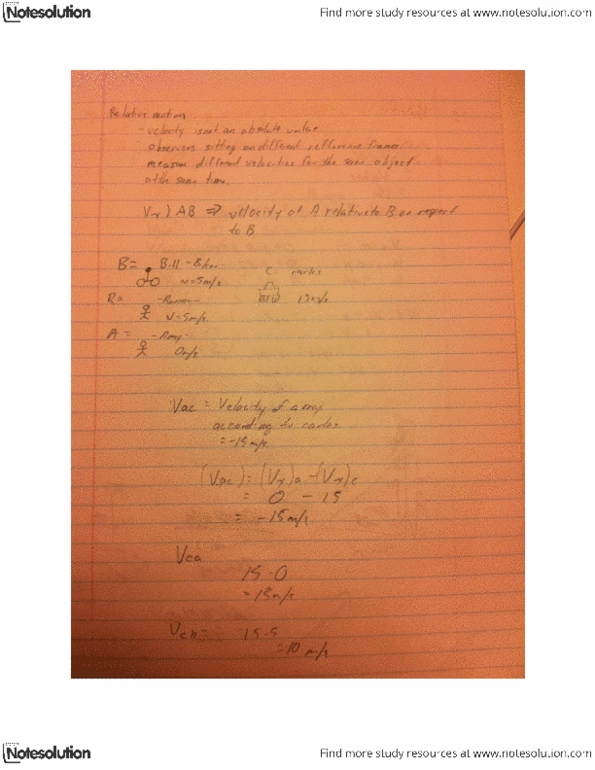 Notesolution
Find more study resources at www.notesolution.com
Relative motion
- velocity is not an absolute value
- observers sitting on different refference frames
measure different velocities for the same object
at the same time.
Vx)AB ⇒ velocity of A relative to B or respect
to B
B= Bill - Biker
v=5m/s
C carlos
15m/s
R= -Runner-
V=5m/s
A = -Amy-
0m/s
Vac = Velocity of amy
according to carlos
= -15m/s
(Vac) = (Vx)a - (Vx)c
= 0 - 15
= -15m/s
Vca
15-0
= 15m/s
15-5
=10 m/s
Notesolution
Find more study resources at www.notesolution.com